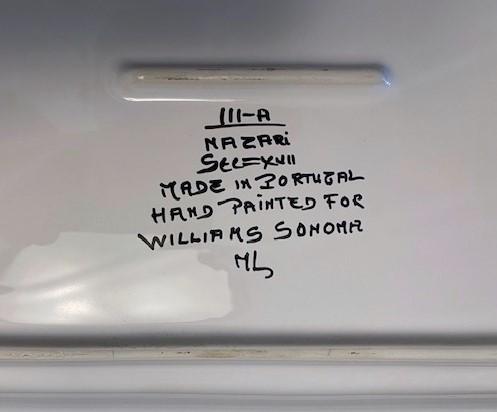 III-A
NAZARI
SEC=XVII
MADE IN PORTUGAL
HAND PAINTED FOR
WILLIAMS SONOMA
ML